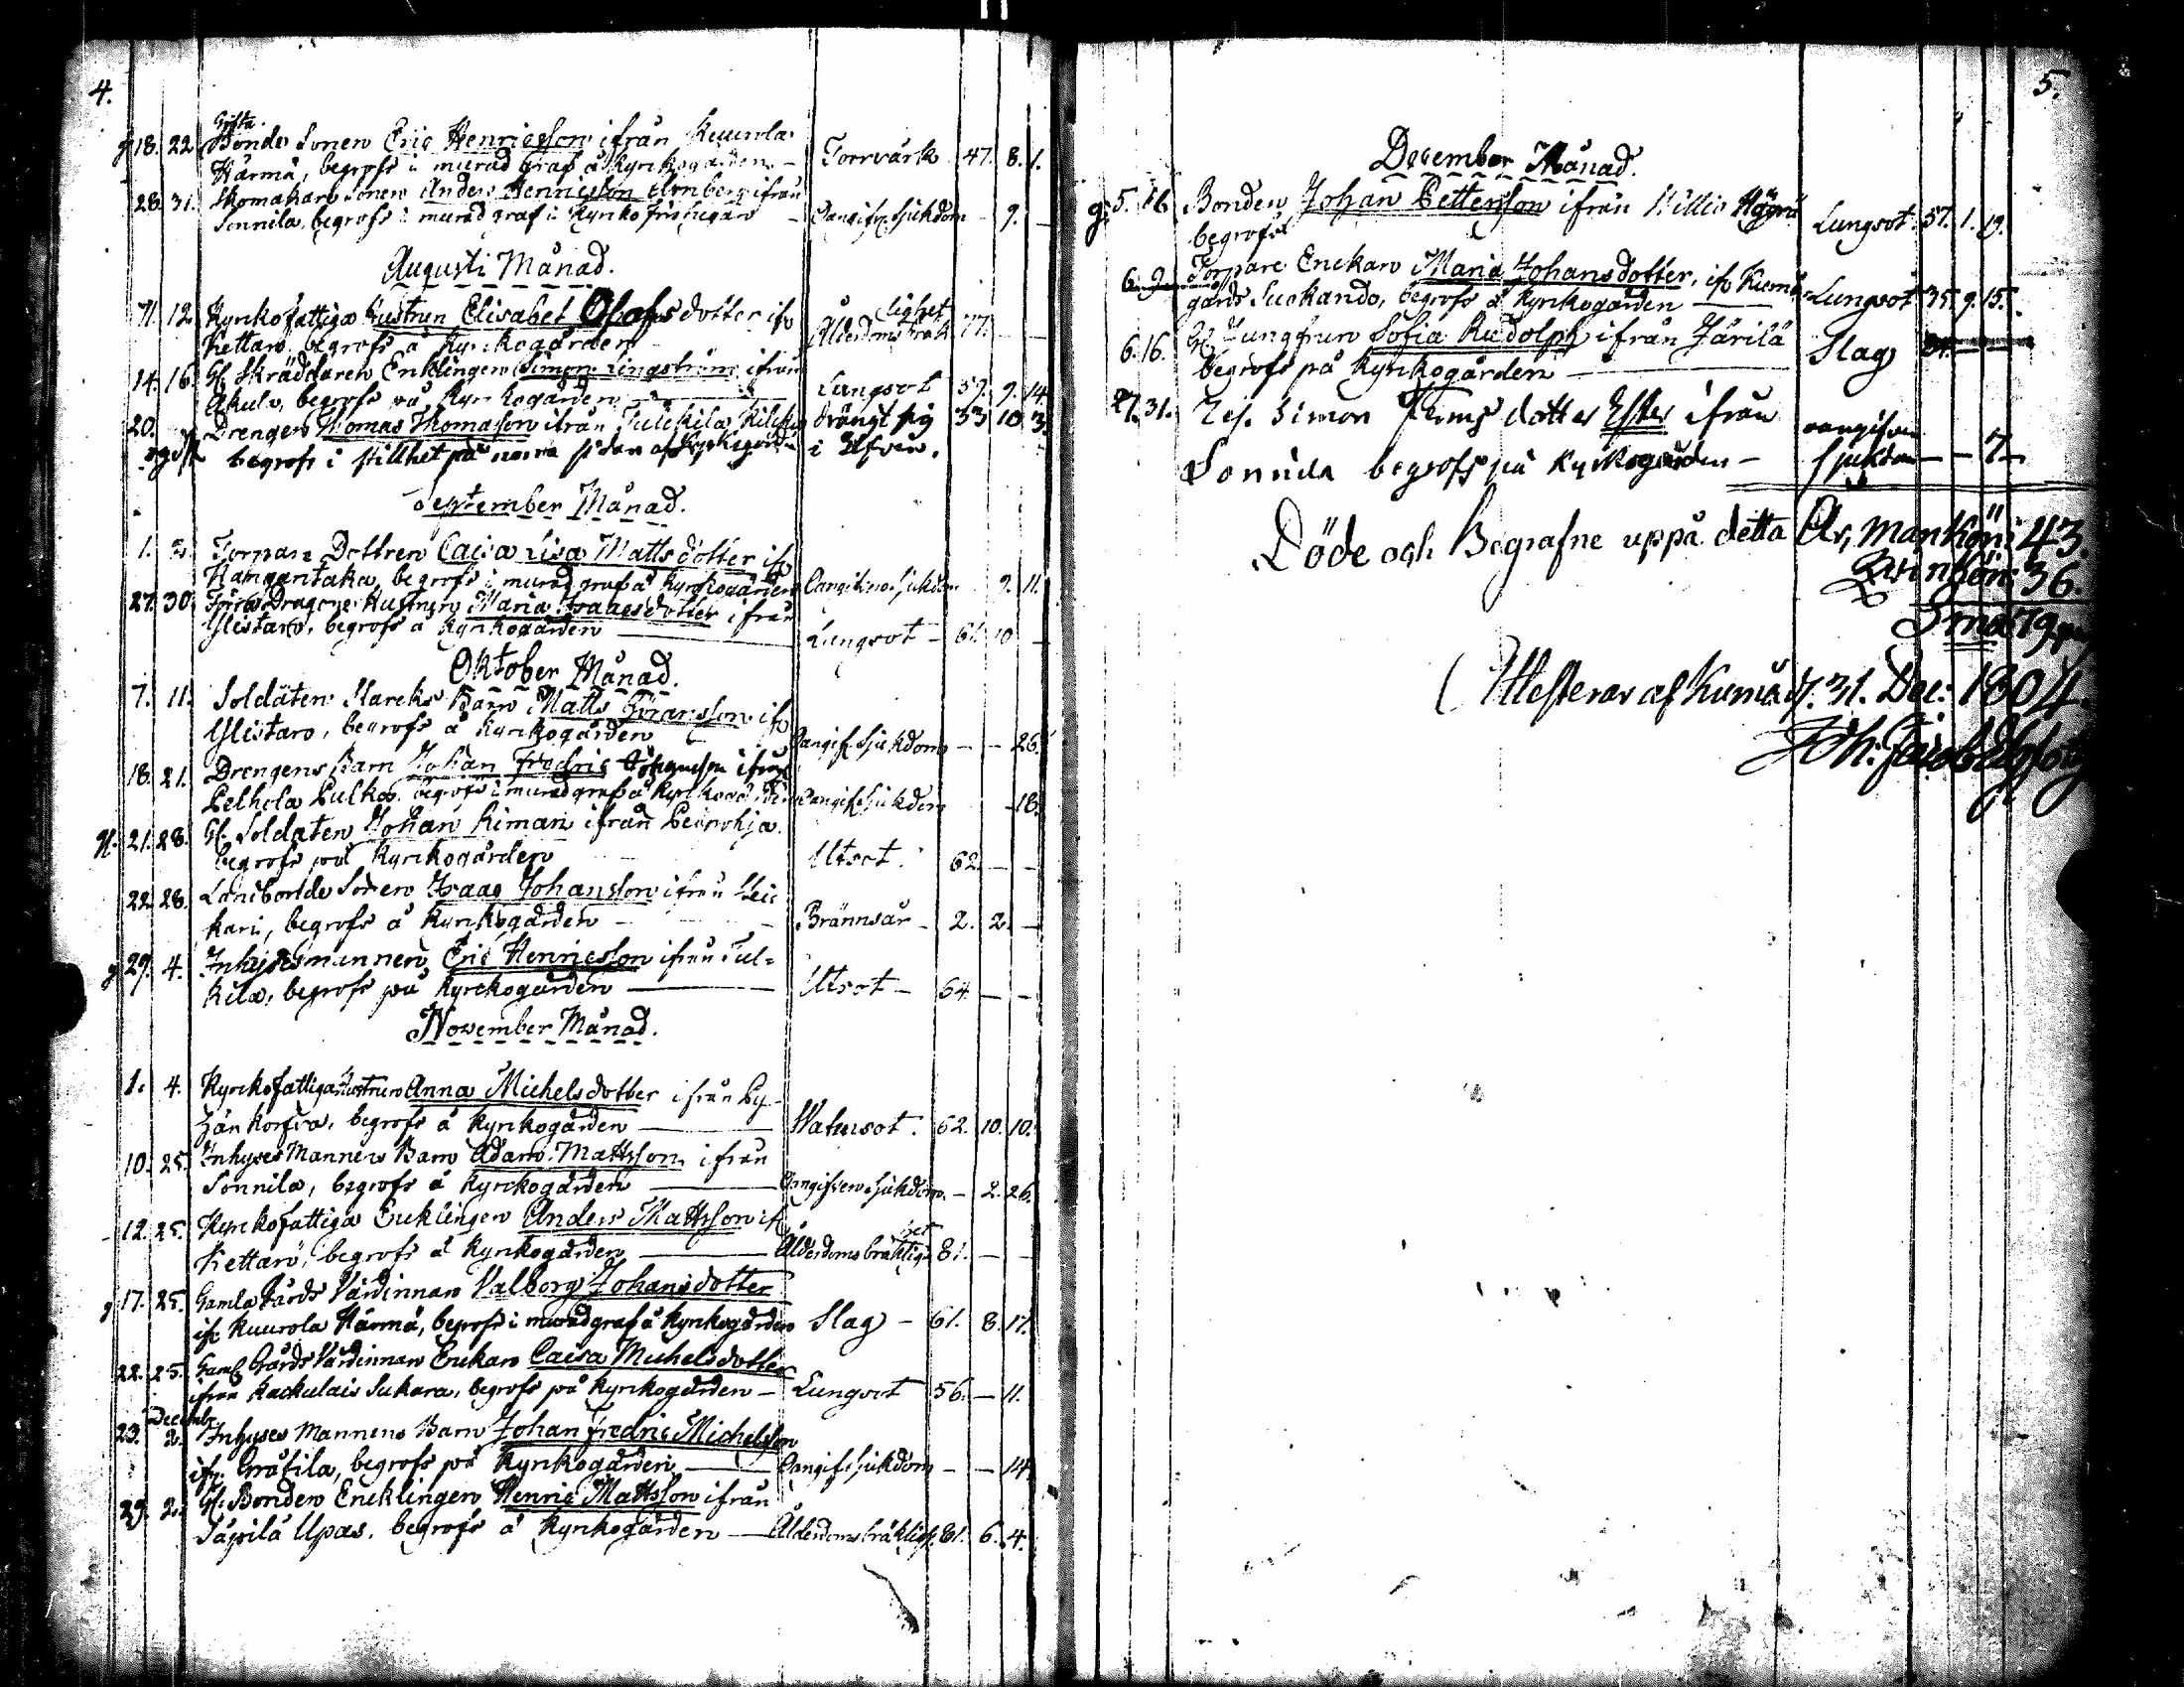 4.
Gifta
g 18. 22 Bonde Sonen Eric Henricsson ifrån Kuurola
Härmä, begrofs i murad graf å Kyrkogården - Torrvärk 47. 8. 1.
28. 31. Skomakare Sonen Anders Henricsson ifrån
Sonnila, begrofs i murad graf i Kyrko - Oangifn Sjukdom - 9. -
Augusti Månad.
7. 12 Kyrkofattiga Hustrun Elisabet Olofsdotter ifr
lighet
Kettara, begrofs å Kyrkogården Ålderdoms bräk 77. - -
14. 16. Gl. Skräddaren Enklingen Simon ifrån
begrofs på Kyrkogården Lungsot 59. 9. 14
20. Drengen Thomas Thomason ifrån Tulckila Kilckis drängt sig 33 10 3.
begrofs i stillhet på norra sidan af Kyrkogården i Elfven.
September Månad.
1. 2. Torpare Dottren Caisa Lisa Matts dotter ifr
begrofs i murad graf å Kyrkogården Oangifven Sjukdom 9. 11.
27. 30 Dragone Hustrun Maria Isaacsdotter ifrån
Ylistaro, begrofs å Kyrkogården Lungsot - 61. 10 -
Oktober Månad.
7. 11. Soldaten Starcks Barn Matts Göransson ifr
Ylistaro, begrofs å Kyrkogården Oangif. Sjukdom - - 26.
18. 21. Drengens Barn Johan Fredric ifrån
Pelhola Pulkos, begrofs i murad graf å Kyrkogården Oangif. Sjukdom - 18.
g. 21. 28. Gl. Soldaten Johan Riman ifrån Peipohja
begrofs på Kyrkogården Utsot. 62. - -
22. 28. Landbonde Sonen Isaac Johansson ifrån
kari, begrofs å Kyrkogården - Brännsår - 2. 2. -
g 29. 4. Inhysesmannen Eric Henricsson ifrån Tul=
kila, begrofs på Kyrckogården Utsot - 64. - -
November Månad.
1. 4. Kyrckofattiga Hustrun Anna Michelsdotter ifrån Py-
hän korfva, begrofs å Kyrkogården Watusot. 62. 10. 10.
10. 25. Inhyses Mannens Barn Adam Mattsson ifrån
Sonnila, begrofs å Kyrckogården Oangifven Sjukdom. - 2. 26.
12. 25. Kyrckofattiga Encklingen Anders Mattsson ifr
het
Kettara, begrofs å Kyrkogården Ålderdoms bräklig 81. - -
g 17. 25. Gamla Gårds Värdinnan Valborg Johansdotter
ifr Kuurola Härmä, begrofs i murad graf å Kyrkogården Slag - 61. 8. 17.
22. 25. Gaml Gårds Värdinnan Enckan Caisa Michelsdotter
ifrån Kackulais Sukara, begrofs på Kyrkogården - Lungsot 56. - 11.
Decembr
23. 2. Inhyses Mannens Barn Johan Fredric Michelsson
ifr. Gråtila, begrofs på Kyrkogården Oangif. Sjukdom - - 14
29. 2. Gl. Bonden Encklingen Henric Mattsson ifrån
Säpilä Upas, begrofs å Kyrkogården - Ålderdoms bräklig. 81. 6. 4.
5.
December Månad.
g. 5. 16 Bonden Johan Pettersson ifrån Villio
begrofs Lungsot 57. 1. 19.
6. 9. Torpare Enckan Maria Johansdotter, ifr Kumo
gårds Suckando, begrofs å Kyrkogården Lungsot 35. 9. 15.
6. 16. Gl. Jungfrun Sofia Rudolph ifrån Järilä
begrofs på Kyrkogården Slag
27. 31. Simon dotter Ester ifrån oangifven
Sonnila begrofs på Kyrkogården - sjukdom - - 7 -
Döde och Begrafne uppå detta År, Mankön: 43.
Qvinkön: 36.
Sma 79
Attesterar af Kumo d. 31. Dec: 1804.
Joh: Jacob